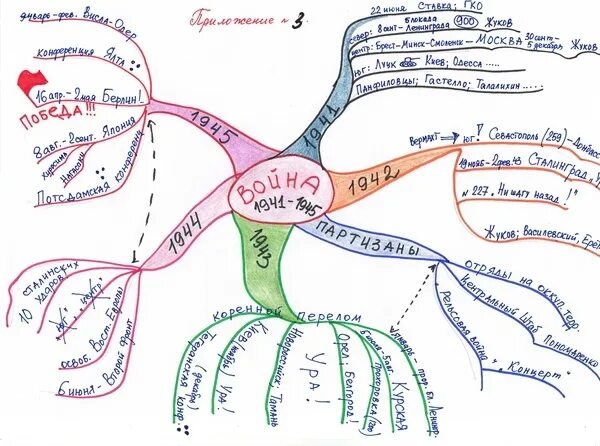 Приложение № 3.
ВОЙНА
1941-1945
1941
22 июня Ставка; ГКО
блокада
север: 8 сент-Ленинграда 900 Жуков
центр: Брест-Минск-Смоленск-МОСКВА 30 сент- 5 декабря Жуков
юг: Луцк Киев; Одесса ....
Панфиловцы; Гастелло; Талалихин .....
1942
Вермахт юг! Севастополь (259)-Донбасс
19 нояб-2 фев.43 Сталинград
№ 227 „Ни шагу назад!"
Жуков; Василевский,
ПАРТИЗАНЫ
отряды на оккуп. терр.
Центральный Штаб Пономаренко
„Рельсовая война"
„Концерт"
1943
Коренной Перелом
январь- прор. бл. Ленингр.
5 июля-5 авг. Курская
Прохоровка
Орёл; Белгород!
Ура!
Новороссийск; Тамань
Киев (ноябрь) Ура!
Тегеранская конф.
(декабрь)
1944
10 сталинских ударов
"юг" "центр"
освоб. Вост. Европы
6 июня- Второй фронт
1945
январь-фев. Висла-Одер
конференция Ялта
16 апр.-2 мая Берлин!
ПОБЕДА!!!
8 авг.-2 сент. Япония
Хиросима
Нагасаки
Потсдамская конферен.